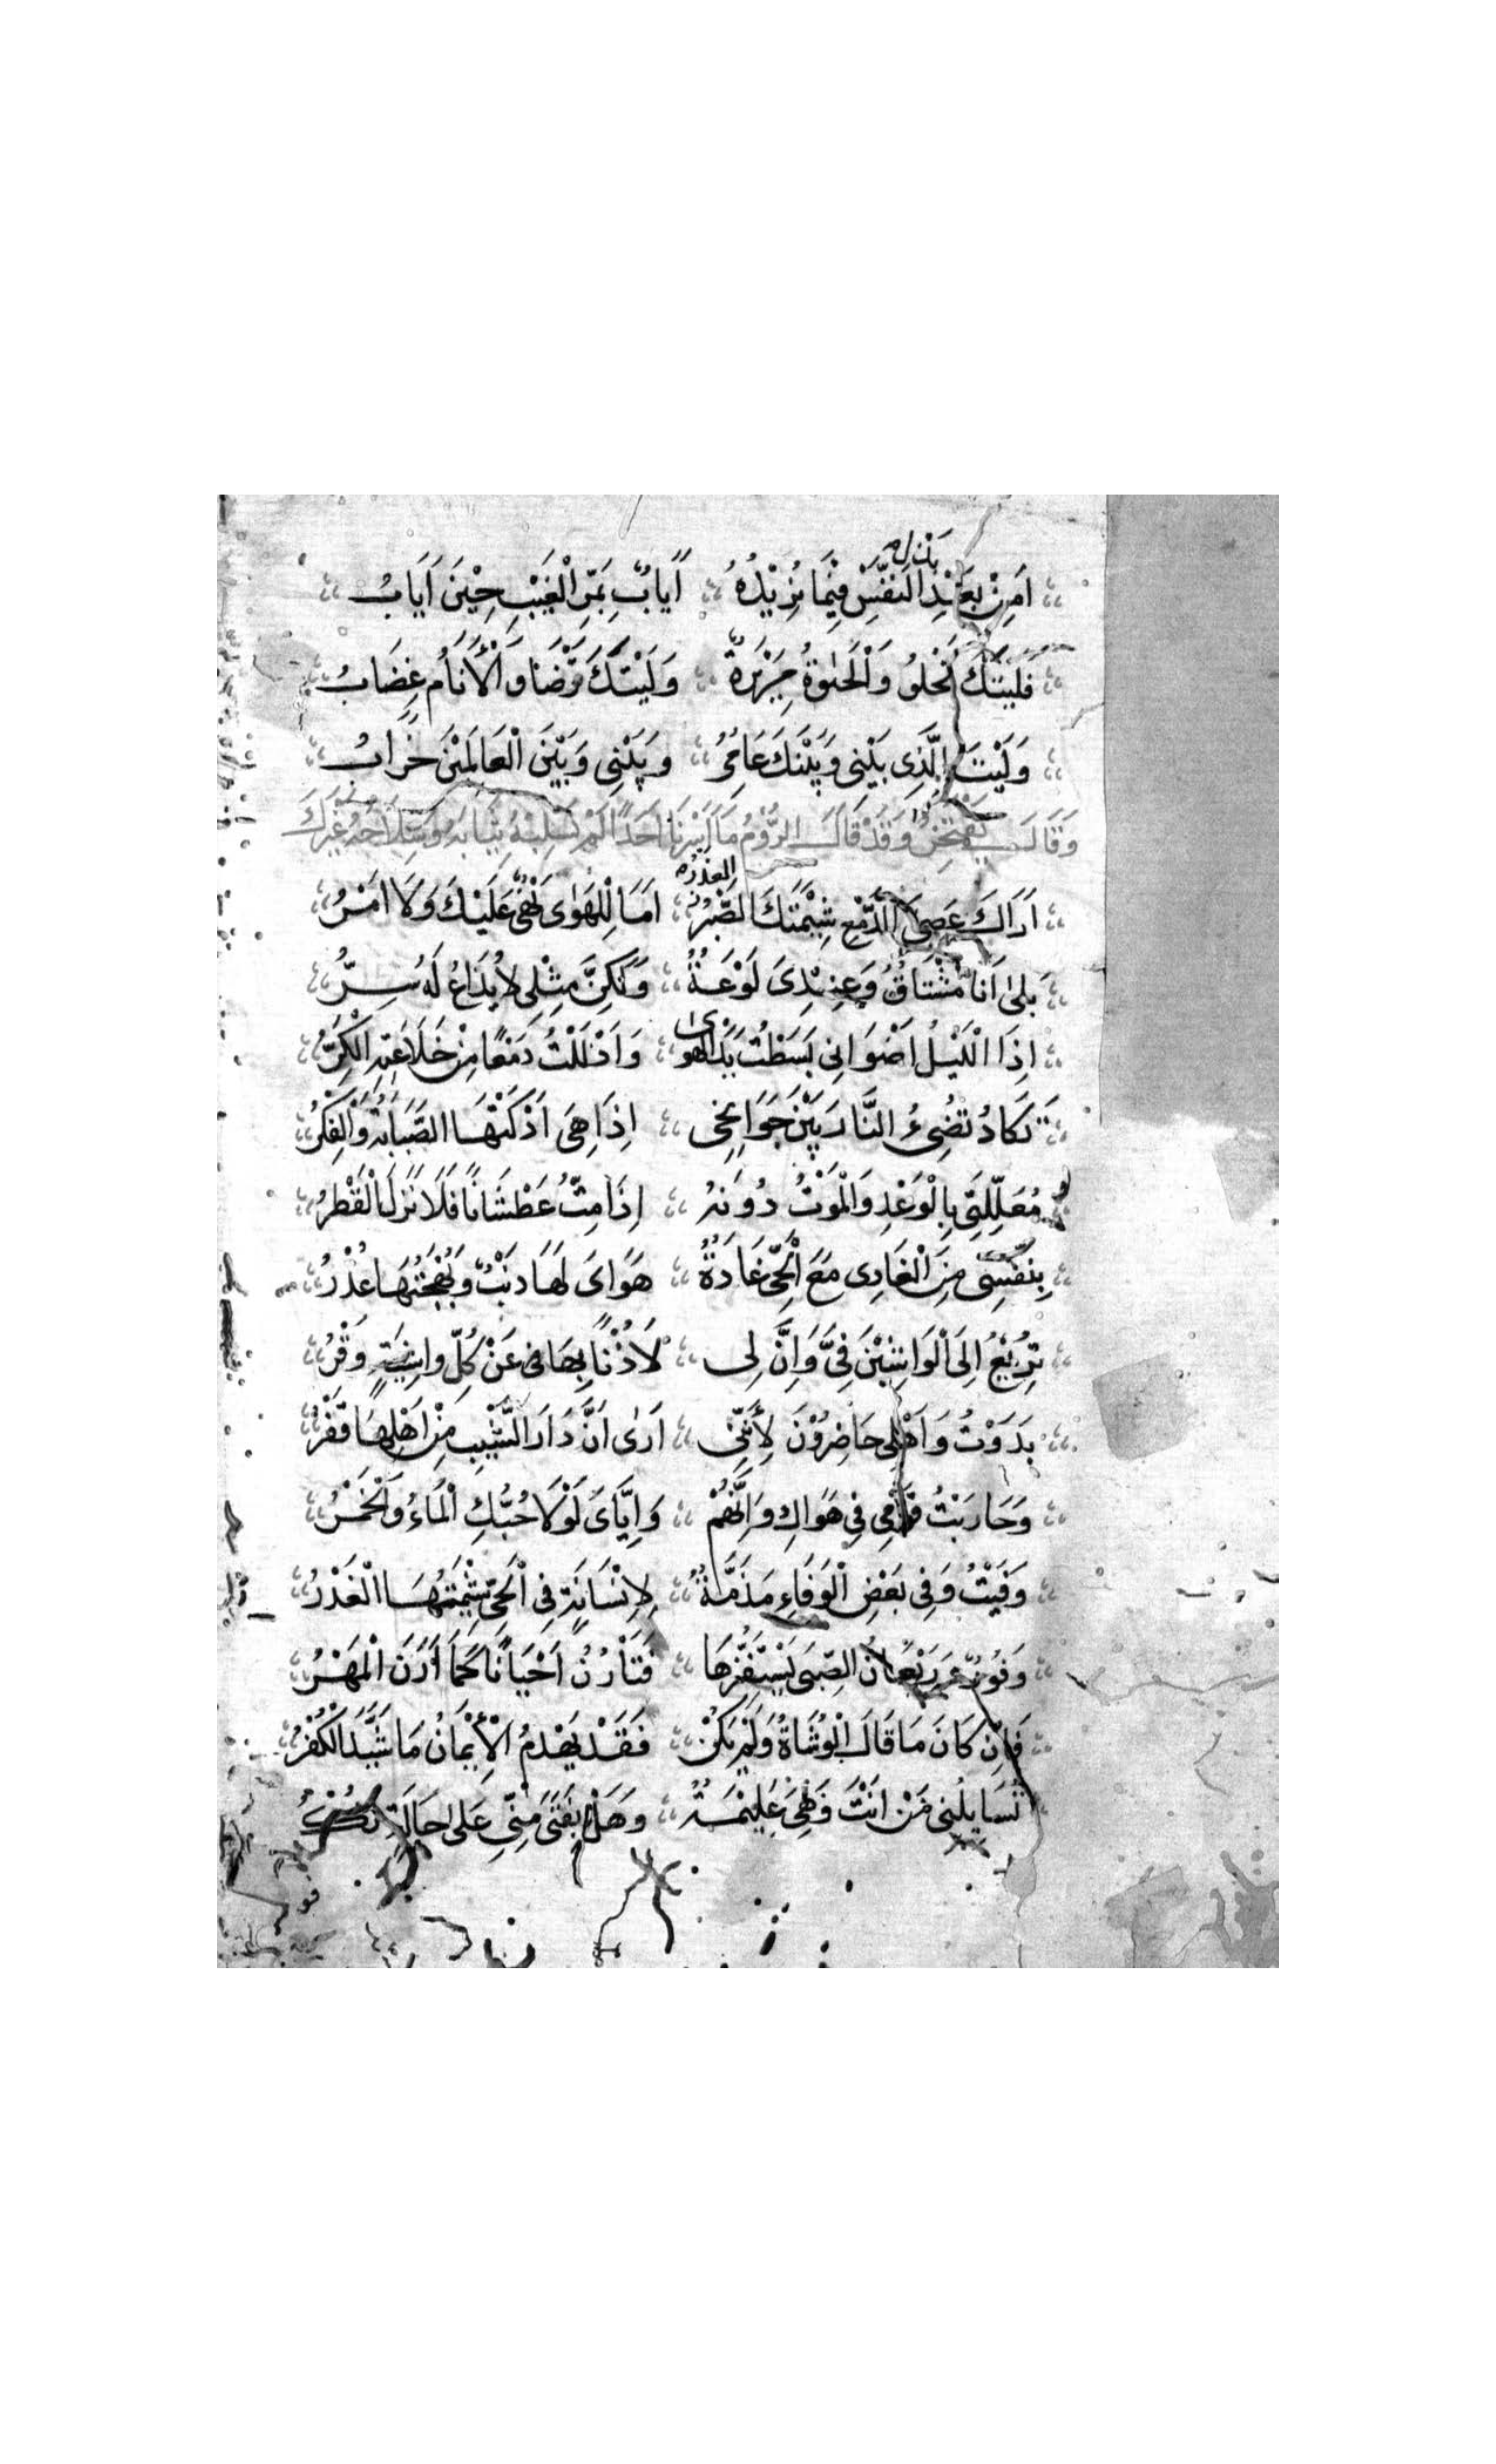 اَمِنْ بَعْدِ النَّفْسِ فِيْمَا تُرِيْدُهُ اَيَابُ بِمَرِّ الْغَيْبِ حِيْنَ اَيَابُ
فَلَيْتَكَ تَحْلُو وَالْحَيٰوةُ مَرِيْرَةٌ وَلَيْتَكَ تَرْضَا وَالْأَنَامُ غِضَابُ
وَلَيْتَ الَّذِي بَيْنِي وَبَيْنَكَ عَامِرُ وَبَيْنِي وَبَيْنَ الْعَالَمَيْنَ خَرَابُ
وَقَالَ يَفْتَخِرُ وَقَدْ قَالَتِ الرُّوْمُ مَا اَسَرْنَا اَحَدًا لَمْ نَسْلِبْهُ ثِيَابَهُ وَسِلَاحَهُ غَيْرَكَ
العذره
اَرَاكَ عَصِيَّ الدَّمْعِ شِيْمَتُكَ الصَّبْرُ اَمَا لِلْهَوٰى نَهْيٌ عَلَيْكَ وَلَا اَمْرُ
بَلىٰ اَنَا مُشْتَاقُ وَعِنْدِىَ لَوْعَةُ وَلٰكِنَّ مِثْلِي لَا يُذَاعُ لَهُ سِرُّ
اِذَا الْلَيْلُ اَضْوَانِي بَسَطْتُ يَدَ الهوى وَاَذْلَلْتُ دَمْعًا مِنْ خَلَائِقِهِ الْكِبْرُ
تَكَادُ تُضِىءُ النَّارَ بَيْنَ جَوَانِحِي اِذَا هِيَ اَذْكَتْهَا الصَّبَابَةُ وَالْفِكْرُ
مُعَلِّلَتِي بِالْوَعْدِ وَالْمَوْتُ دُونَهُ اِذَا مِتُّ عَطْشَانًا فَلَا نَزَلَ الْقَطْرُ
بِنَفْسِي مِنَ الْغَادِى مَعَ الْحَيِّ غَادَةٌ هَوَاىَ لَهَا ذَنْبٌ وَبَهْجَتُهَا عُذْرُ
تُرِيْغُ اِلَى الْوَاشِيْنَ فِيَّ وَاِنَّ لِي لَاُذْنًا بِهَا عَنْ كُلِّ وَاشِيَةٍ وَقْرُ
بَدَوْتُ وَاَهْلِي حَاضِرُوْنَ لِأَنَّنِي اَرَى اَنَّ دَارَ الشَّيْبِ مِنْ اَهْلِهَا قَفْرُ
وَحَارَبْتُ قَوْمِي فِي هَوَاكِ وَاِنَّهُمْ وَاِيَّاىَ لَوْلَا حُبُّكِ الْمَاءُ وَالْخَمْرُ
وَفَيْتُ وَفِي بَعْضِ الْوَفَاءِ مَذَمَّةٌ لِاِنْسَانَةٍ فِي الْحَيِّ شِيْمَتُهَا الْغَدْرُ
وَقُورٌ وَرَيْعَانُ الصِّبَى يَسْتَفِزُّهَا فَتَأْرُنُ اَحْيَانًا كَمَا اَرَنَ الْمُهْرُ
فَاِنْ كَانَ مَا قَالَ الْوُشَاةُ وَلَمْ يَكُنْ فَقَدْ يَهْدِمُ الْأِيْمَانُ مَا شَيَّدَ الْكُفْرُ
تُسَايِلُنِي مَنْ اَنْتَ وَهْيَ عَلِيْمَةٌ وَهَلْ بِفَتًى مِثْلِي عَلَى حَالَةٍ نُكْرُ